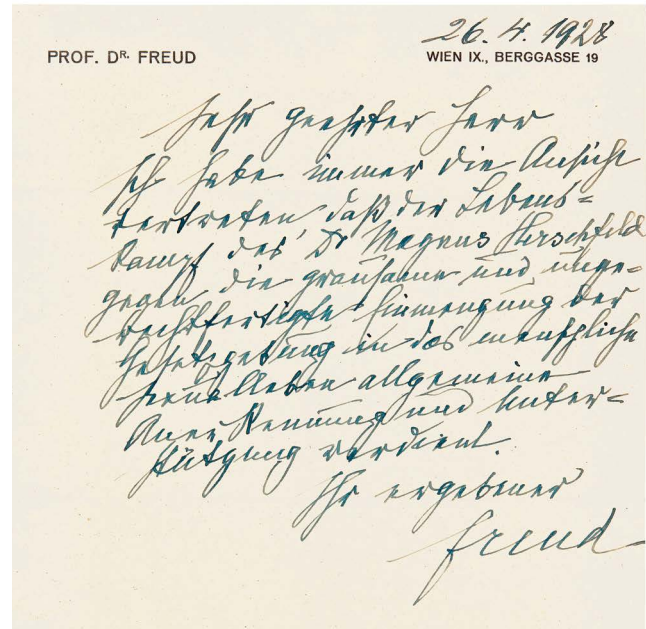 26. 4. 1928
PROF. DR. FREUD
WIEN IX., BERGGASSE 19
Sehr geehrter Herr
Ich habe immer die Ansicht
vertreten daß der Lebens=
kampf des Dr Magnus Hirschfeld
gegen die grausame und unge=
rechtfertigte Einmengung der
Gesetzgebung in das menschliche
Sexualleben allgemeine
Anerkennung und Unter=
stützung verdient.
Ihr ergebener
Freud